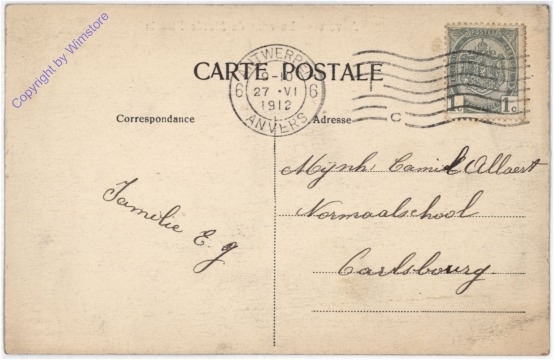 Copyright by Wimstore
CARTE POSTALE
ANTWERPEN
6 6
27 · VI
1912
ANVERS
1c 1c
Correspondance
Adresse
C
Mijnh. Camiel Allaert
Normaalschool
Carlsbourg
Familie E. g